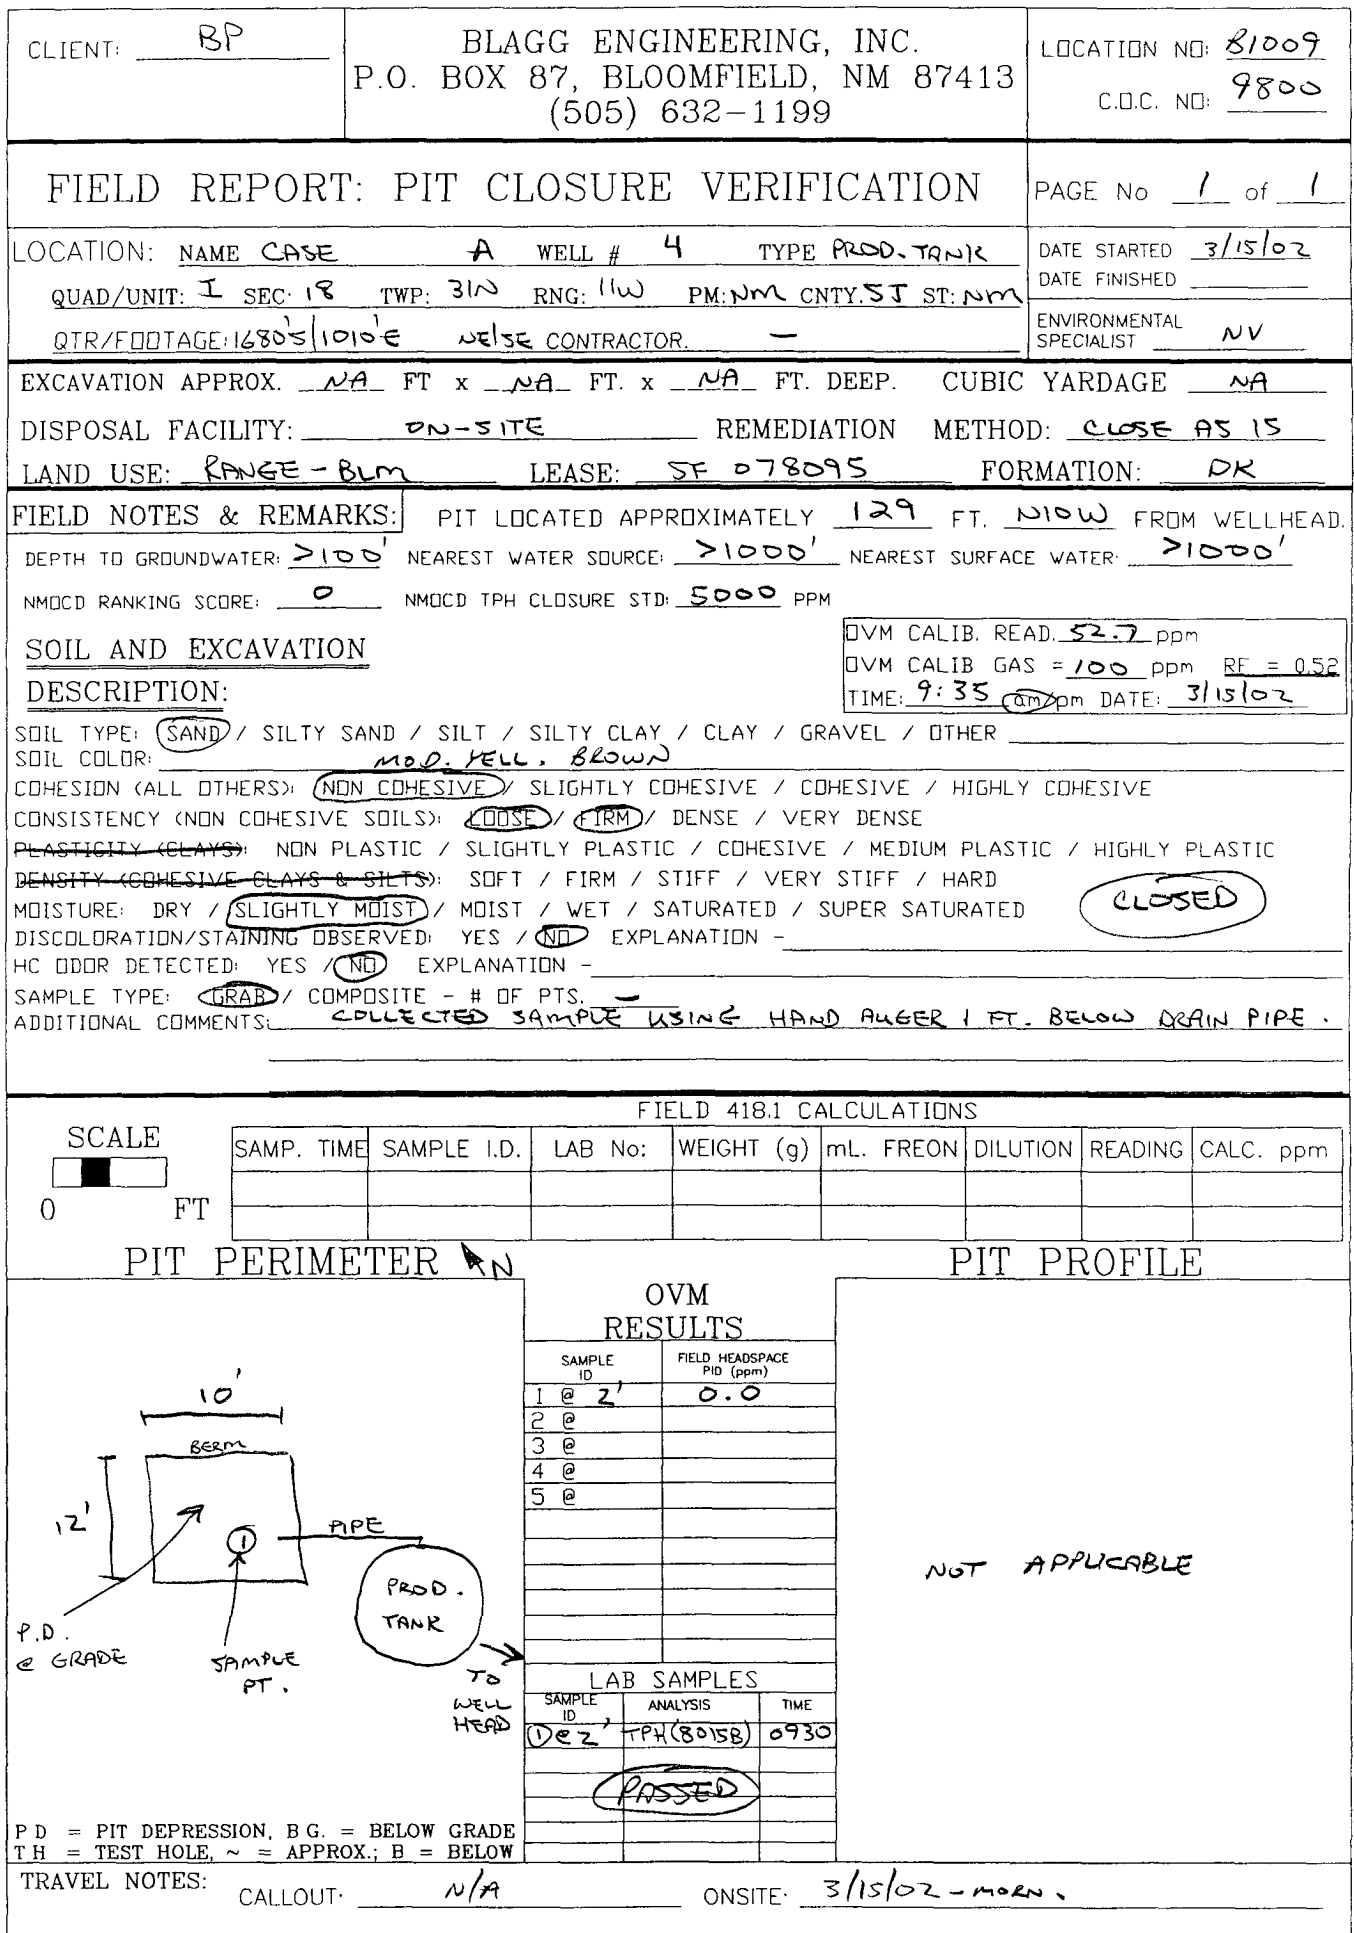 CLIENT: BP
BLAGG ENGINEERING, INC.
P.O. BOX 87, BLOOMFIELD, NM 87413
(505) 632-1199
LOCATION NO: B1009
C.O.C. NO: 9800
FIELD REPORT: PIT CLOSURE VERIFICATION
PAGE No 1 of 1
LOCATION: NAME CASE A WELL # 4 TYPE PROD. TANK
QUAD/UNIT: I SEC: 18 TWP: 31N RNG: 11W PM: NM CNTY. SJ ST: NM
QTR/FOOTAGE: 1680'S/1010'E NE/SE CONTRACTOR. -
DATE STARTED 3/15/02
DATE FINISHED
ENVIRONMENTAL
SPECIALIST NV
EXCAVATION APPROX. NA FT x NA FT. x NA FT. DEEP. CUBIC YARDAGE NA
DISPOSAL FACILITY: ON-SITE REMEDIATION METHOD: CLOSE AS IS
LAND USE: RANGE - BLM LEASE: SF 078095 FORMATION: DK
FIELD NOTES & REMARKS: PIT LOCATED APPROXIMATELY 129 FT. N10W FROM WELLHEAD.
DEPTH TO GROUNDWATER: >100' NEAREST WATER SOURCE: >1000' NEAREST SURFACE WATER: >1000'
NMOCD RANKING SCORE: 0 NMOCD TPH CLOSURE STD: 5000 PPM
SOIL AND EXCAVATION
DESCRIPTION:
OVM CALIB. READ. 52.7 ppm
OVM CALIB GAS = 100 ppm RF = 0.52
TIME: 9:35 am/pm DATE: 3/15/02
SOIL TYPE: SAND / SILTY SAND / SILT / SILTY CLAY / CLAY / GRAVEL / OTHER
SOIL COLOR: MOD. YELL. BROWN
COHESION (ALL OTHERS): NON COHESIVE / SLIGHTLY COHESIVE / COHESIVE / HIGHLY COHESIVE
CONSISTENCY (NON COHESIVE SOILS): LOOSE / FIRM / DENSE / VERY DENSE
PLASTICITY (CLAYS): NON PLASTIC / SLIGHTLY PLASTIC / COHESIVE / MEDIUM PLASTIC / HIGHLY PLASTIC
DENSITY (COHESIVE CLAYS & SILTS): SOFT / FIRM / STIFF / VERY STIFF / HARD
MOISTURE: DRY / SLIGHTLY MOIST / MOIST / WET / SATURATED / SUPER SATURATED
CLOSED
DISCOLORATION/STAINING OBSERVED: YES / NO EXPLANATION -
HC ODOR DETECTED: YES / NO EXPLANATION -
SAMPLE TYPE: GRAB / COMPOSITE - # OF PTS. -
ADDITIONAL COMMENTS: COLLECTED SAMPLE USING HAND AUGER 1 FT. BELOW DRAIN PIPE.
FIELD 418.1 CALCULATIONS
SCALE
0 FT
SAMP. TIME SAMPLE I.D. LAB No: WEIGHT (g) mL. FREON DILUTION READING CALC. ppm
PIT PERIMETER N
PIT PROFILE
OVM
RESULTS
SAMPLE ID FIELD HEADSPACE PID (ppm)
1 @ 2' 0.0
2 @
3 @
4 @
5 @
10'
BERM
12'
1
PIPE
PROD. TANK
P.D. @ GRADE
SAMPLE PT.
TO WELL HEAD
NOT APPLICABLE
LAB SAMPLES
SAMPLE ID ANALYSIS TIME
1@2' TPH(8015B) 0930
PASSED
P D = PIT DEPRESSION, B G. = BELOW GRADE
T H = TEST HOLE, ~ = APPROX.; B = BELOW
TRAVEL NOTES: CALLOUT: N/A ONSITE: 3/15/02 - MORN.